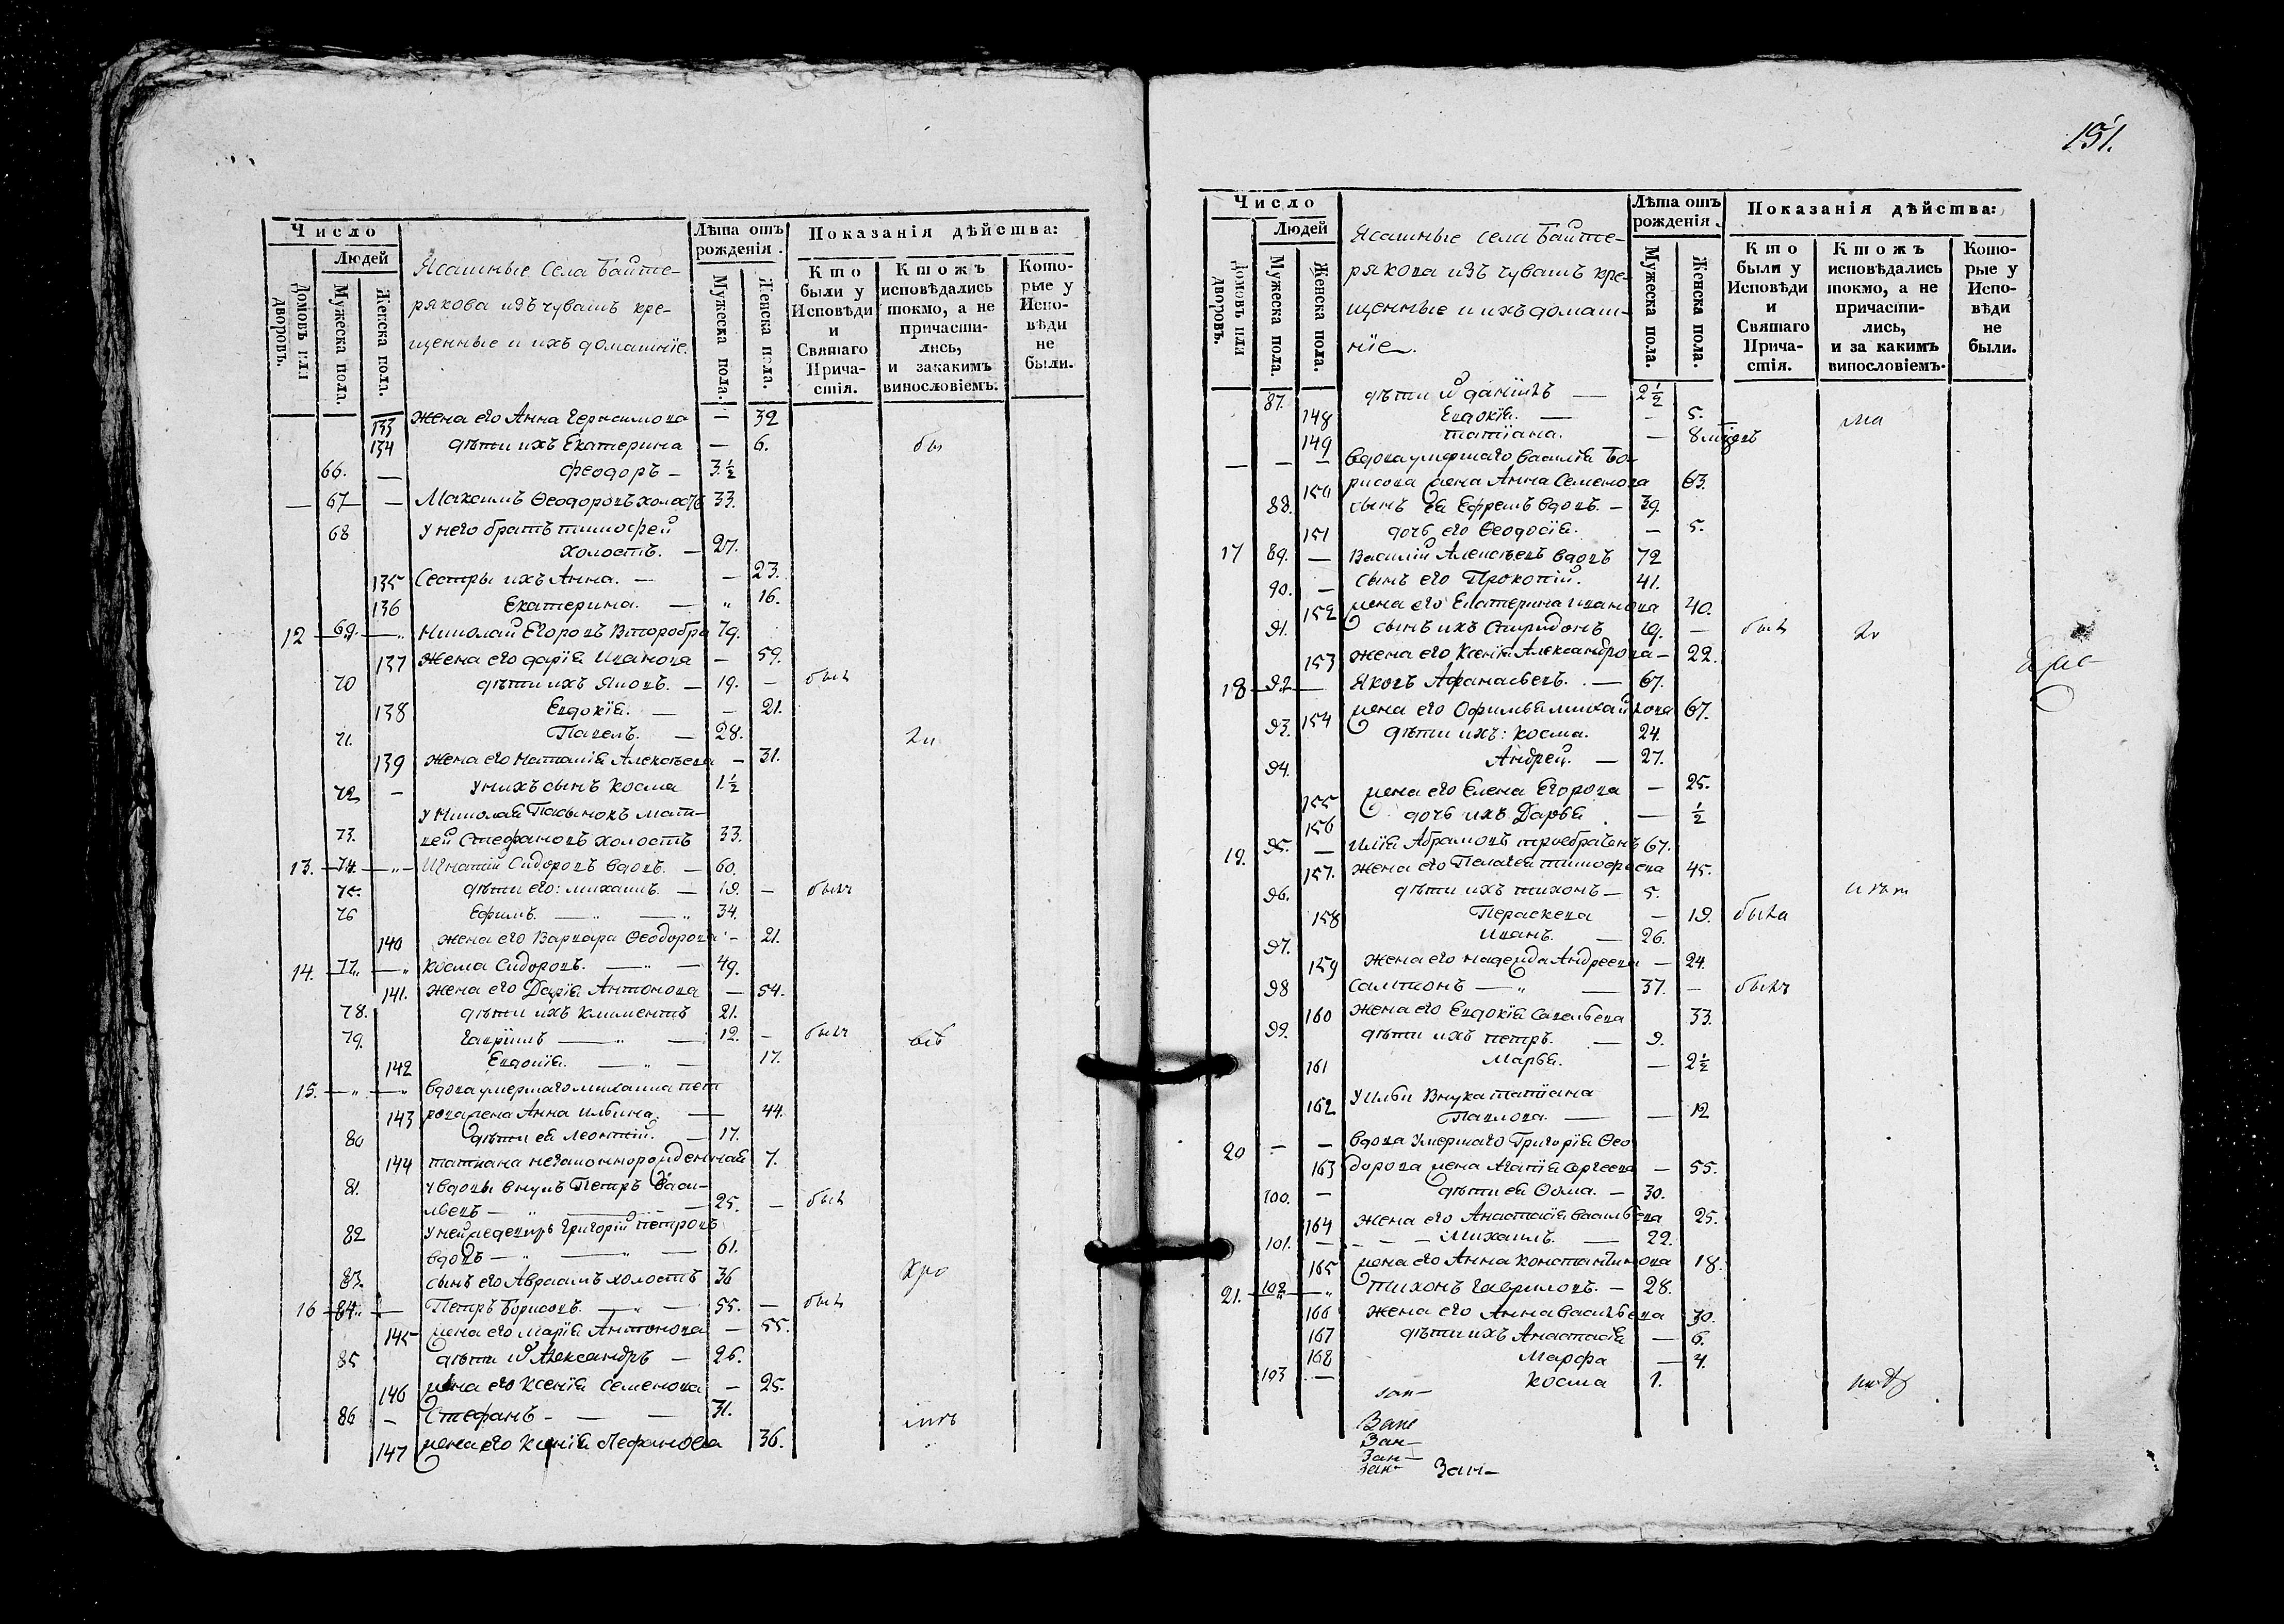 Число
Людей
Домовъ или дворовъ.
Мужеска пола.
Женска пола.
Ясашные села Байте-
рякова изъ чувашъ кре-
щенные и ихъ домашніе.
Лѣта отъ рожденія.
Мужеска пола.
Женска пола.
Показанія дѣйства:
Кто были у Исповѣди и Святаго Прича-стія.
Ктожъ исповѣдались токмо, а не причасти-лись, и закакимъ винословіемъ.
Кото-рые у Испо-вѣди не были.
133 Жена его Анна Герасимова — 32
134 дѣти ихъ Екатерина — 6.
66. — Феодоръ — 3 ½
— 67 — Максимъ Ѳеодоровъ холостъ 33.
68 У него братъ тимофей
холостъ. — 27.
135 Сестры ихъ Анна. — — 23.
136 Екатерина. — „ 16.
12 69. — Николай Егоровъ Второбра 79.
137 Жена его дарія Иванова — 59.
70 дѣти ихъ Яковъ. — 19. — былъ
138 Евдокія. — — 21.
71. Павелъ. — 28.
139 Жена его Наталія Алексѣева — 31.
72 — У нихъ сынъ Косма 1 ½
У Николая Пасынокъ мат-
73. вей Стефановъ холостъ 33.
13. 74. — „ — Игнатій Сидоровъ вдовъ. — 60.
75. дѣти его: михаилъ. — 19. — былъ
76 Ефимъ. — „ — „ 34.
140 жена его Варвара Ѳеодорова — 21.
14. 77. — „ Косма Сидоровъ. — „ — 49.
141. жена его Дарія Антонова — 54.
78. дѣти ихъ Климентъ 21.
79. Гавріилъ — „ — 12. — былъ
142 Евдокія. — „ — 17.
15. — „ — „ вдова умершаго михаила пет
143 рова жена Анна ильина. — 44.
80 дѣти ея Леонтій. — 17.
144 татиана незаконнорожденная 7.
81. У вдовы внукъ Петръ Васи-
льевъ — „ — 25. — былъ
82 У ней деверь Григорій петровъ
вдовъ — „ — „ — 61.
83. сынъ его Авраамъ холостъ 36
16 84. — Петръ Борисовъ. — „ — 55. — былъ
145 жена его Марія Антонова — 55.
85 дѣти ѿ Александръ — 26.
146 жена его Ксенія Семенова — 25.
86 — Стефанъ — — — 31.
147 жена его Ксенія 36.
151.
Число
Людей
Домовъ или дворовъ.
Мужеска пола.
Женска пола.
Ясашные села Байте-
рякова изъ чувашъ кре-
щенные и ихъ домаш-
ніе.
Лѣта отъ рожденія.
Мужеска пола.
Женска пола.
Показанія дѣйства:
Кто были у Исповѣди и Святаго Прича-стія.
Ктожъ исповѣдались токмо, а не причасти-лись, и за какимъ винословіемъ.
Кото-рые у Испо-вѣди не были.
87. дѣти ѿ даніилъ — 2 ½
148 Евдокія. — — 5.
149 татіана. — 8
— — — вдова умершаго василія Бо-
150 рисова жена Анна Семенова 63.
88. сынъ ея Ефремъ вдовъ. — 39.
151 дочь его Ѳеодосія. — 5.
17 89. — Василій Алексѣевъ вдовъ 72
90. — сынъ его Прокопій. 41.
152 жена его Екатерина иванова 40.
91. сынъ ихъ Спиридонъ 19. — былъ
153 жена его Ксенія Александрова — 22.
18 92 — Яковъ Афанасьевъ. — 67.
154 жена его Офимья михайлова 67.
93. дѣти ихъ: Косма. 24.
94. Андрей. — 27.
155 жена его Елена Егорова — 25.
156 дочь ихъ Дарья — ½
19. 95. — илія Абрамовъ троебраченъ 67.
157. жена его Пелагея тимофеева 45.
96. дѣти ихъ тихонъ — 5.
158 Параскева — 19. была
97. иванъ. — 26.
159 жена его надежда Андреева — 24.
98 Сампсонъ — „ — 37. — былъ
160 жена его Евдокія Савельева 33.
99. дѣти ихъ петръ. — 9.
161 Марья. — 2 ½
162 У ильи Внука татіана
Павлова. — — 12
20 — — вдова умершаго Григорія Ѳео
163 дорова жена Агапія сергеева — 55.
100. — дѣти ея Ѳома. — 30.
164 жена его Анастасія васильева 25.
101. — — — Михаилъ. — 22.
165 жена его Анна Константинова 18.
21. 102 — „ тихонъ Гавриловъ. — 28.
166 жена его Анна васильева 30.
167 дѣти ихъ Анастасія — 6.
168 Марфа — 4.
103 — Косма 1.